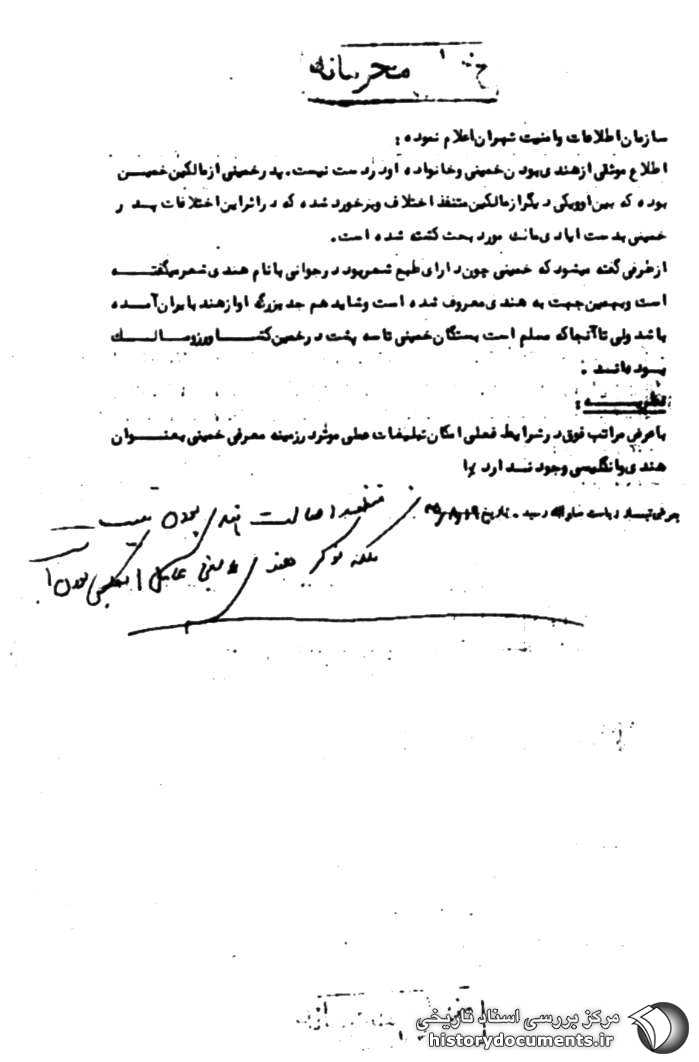 محرمانه
سازمان اطلاعات وامنیت تهران اعلام نموده :
اطلاع موثقی از هندی بودن خمینی وخانواده او در دست نیست. پدر خمینی از مالکین خمین
بوده که بین او ویکی دیگر از مالکین متنفذ اختلاف وبرخورد شده که در اثر این اختلافات پدر
خمینی بدست ایادی مالک مورد بحث کشته شده است.
از طرفی گفته میشود که خمینی چون دارای طبع شعر بود در جوانی با نام هندی شعر میگفته
است وبهمین جهت به هندی معروف شده است وشاید هم جد بزرگ او از هند بایران آمده
باشد ولی تا آنجا که معلم است بستگان خمینی تا سه پشت در خمین کشاورز ومالک
بوده‌اند .
نظریه :
با عرض مراتب فوق در شرایط فعلی امکان تبلیغات عملی موثر در زمینه معرفی خمینی بعنوان
هندی وانگلیسی وجود ندارد
بعرض تیمسار ریاست ساواک رسید - تاریخ
منظور اصالت هندی بودن نیست
بلکه نوکر هند یعنی عامل انگلیسی بودن
مرکز بررسی اسناد تاریخی
historydocuments.ir